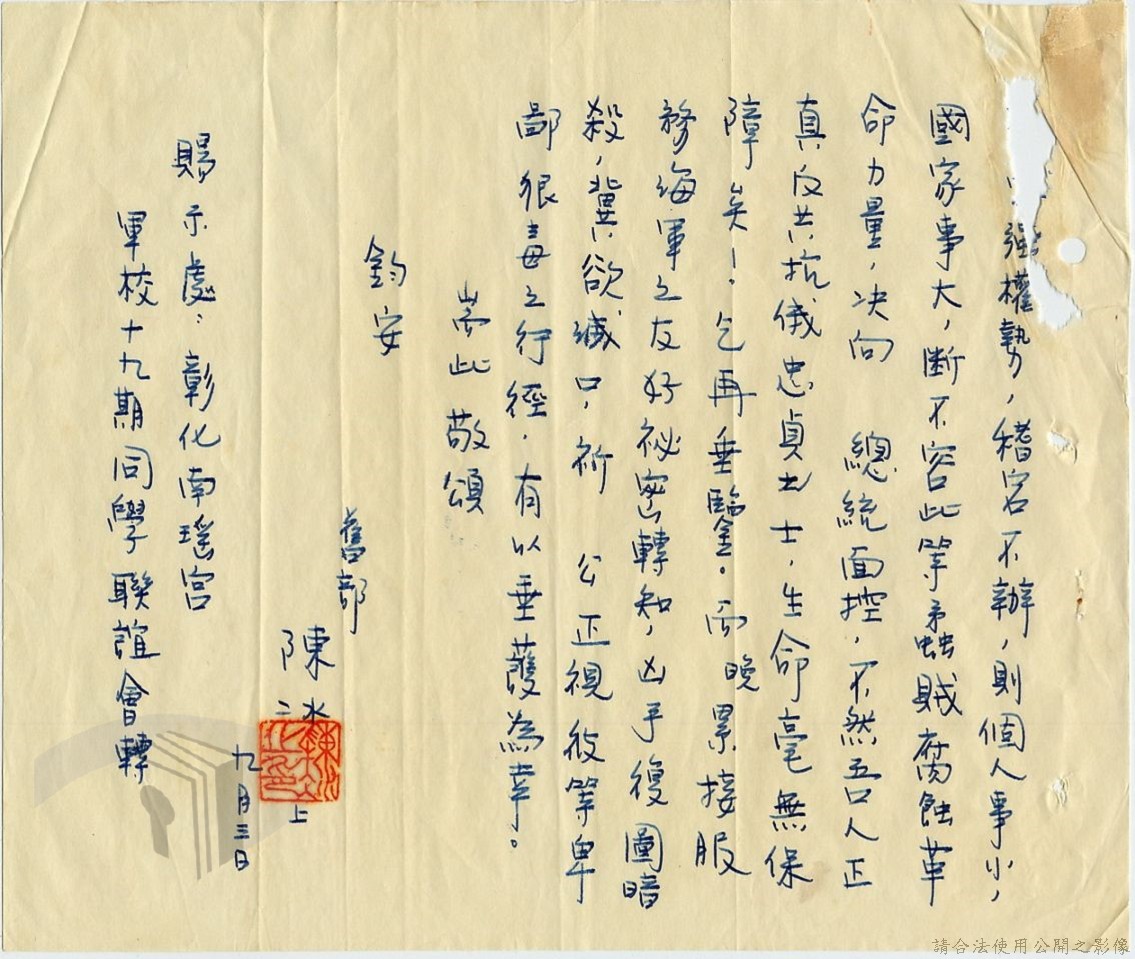 強權勢，稽害不辦，則個人事小，
國家事大，斷不容此等蟊蟲賊腐蝕革
命力量，决向　總統面控，不然吾人正
真反共抗俄忠貞之士，生命毫無保
障矣！．乞再垂鑒。而晚累接服
務海軍之友好祕密轉知，凶手復圖暗
殺，冀欲滅口，祈　公正視彼等卑
鄙狠毒之行徑．有以垂護為幸。
耑此敬頌
鈞安
舊部
陳冰二上
九月三日
賜示處：彰化南瑤宮
軍校十九期同學聯誼會轉
請合法使用公開之影像